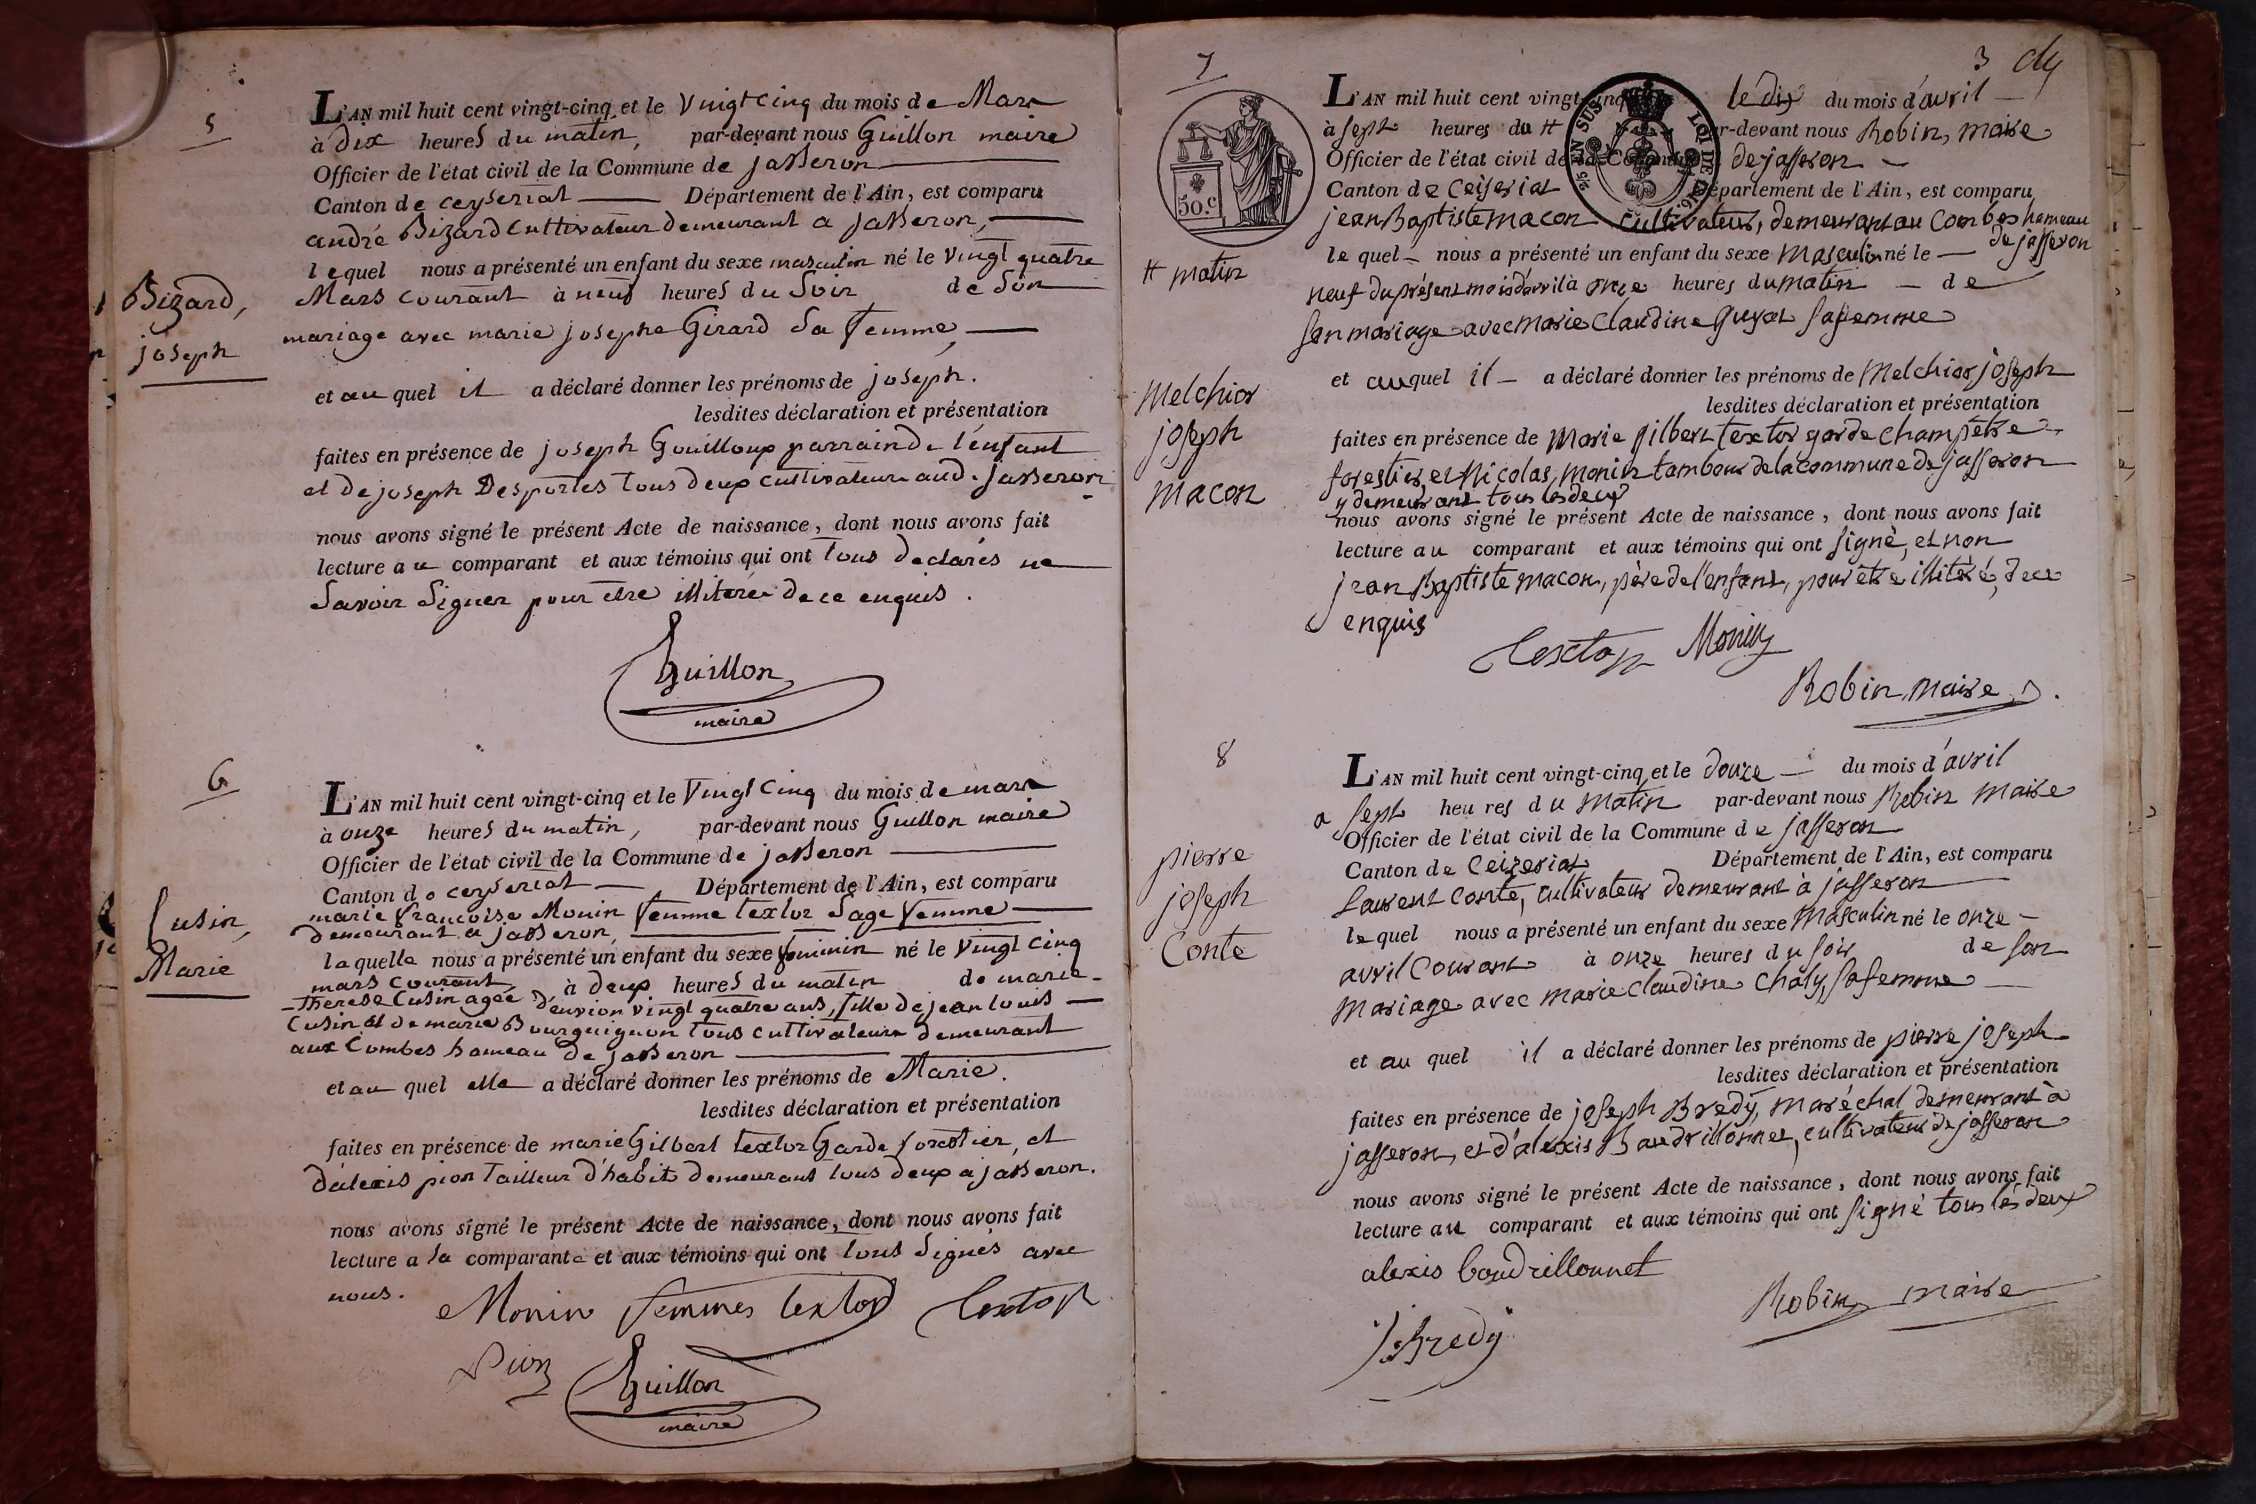 5
L'AN mil huit cent vingt-cinq et le Vingt Cinq du mois de Mars
à dix heures du matin, par-devant nous Guillon maire
Officier de l'état civil de la Commune de jasseron
Canton de ceyseriat Département de l'Ain, est comparu
andré Bizard cultivateur demeurant a jasseron,
lequel nous a présenté un enfant du sexe masculin né le Vingt quatre
Mars courant à neuf heures du Soir de Son
mariage avec marie josephe Girard Sa femme,
Bizard,
joseph
et au quel il a déclaré donner les prénoms de joseph.
lesdites déclaration et présentation
faites en présence de joseph Gouilloux parrain de l'enfant
et de joseph Desportes tous deux cultivateurs aud. jasseron
nous avons signé le présent Acte de naissance, dont nous avons fait
lecture au comparant et aux témoins qui ont tous declarés ne
Savoir Signer pour être illiterés de ce enquis.
Guillon
maire
6
L'AN mil huit cent vingt-cinq et le Vingt Cinq du mois de mars
à onze heures du matin, par-devant nous Guillon maire
Officier de l'état civil de la Commune de jasseron
Canton de ceyseriat Département de l'Ain, est comparu
marie françoise Monin femme textor Sage femme
demeurant a jasseron,
laquelle nous a présenté un enfant du sexe feminin né le Vingt Cinq
mars courant, à deux heures du matin de marie
Therese Cusin agée d'environ vingt quatre ans, fille de jean louis
Cusin et de marie Bourguignon tous cultivateurs demeurant
aux Combes hameau de jasseron
Cusin,
Marie
et au quel elle a déclaré donner les prénoms de Marie.
lesdites déclaration et présentation
faites en présence de marie Gilbert textor Garde forestier, et
d'alexis pion Tailleur d'habits demeurant tous deux a jasseron.
nous avons signé le présent Acte de naissance, dont nous avons fait
lecture a la comparante et aux témoins qui ont tous Signés avec
nous.
Monin femmes textor Textor
Pion
Guillon
maire
3
7
50.c
EN SUS LOI DE
L'AN mil huit cent vingt-cinq le dix du mois d'avril
à sept heures du # par-devant nous Robin, maire
Officier de l'état civil de la Commune de jasseron
Canton de Ceizeriat Département de l'Ain, est comparu
jean Baptiste macon cultivateur, demeurant au Combes hameau
de jasseron
le quel nous a présenté un enfant du sexe Masculin né le
# matin
neuf du présent mois d'avril à onze heures du matin de
son mariage avec Marie Claudine Guyot sa femme
Melchior
joseph
macon
et auquel il a déclaré donner les prénoms de Melchior joseph
lesdites déclaration et présentation
faites en présence de Marie gilbert textor garde champêtre
forestier, et Nicolas, Monin tambour de la commune de jasseron
y demeurant tous les deux
nous avons signé le présent Acte de naissance, dont nous avons fait
lecture au comparant et aux témoins qui ont signé, et non
jean Baptiste macon, père de l'enfant, pour être illitéré, de ce
enquis
Textor Monin
Robin, maire
8
L'AN mil huit cent vingt-cinq et le douze du mois d'avril
a sept heures du matin par-devant nous Robin maire
Officier de l'état civil de la Commune de jasseron
Canton de Ceizeriat Département de l'Ain, est comparu
Laurent Conte, cultivateur demeurant à jasseron
le quel nous a présenté un enfant du sexe Masculin né le onze
avril Courant à onze heures du soir de son
Mariage avec marie claudine Chaly, sa femme
pierre
joseph
Conte
et au quel il a déclaré donner les prénoms de pierre joseph
lesdites déclaration et présentation
faites en présence de joseph Bredy, maréchal demeurant à
jasseron, et d'alexis Baudrillonnet, cultivateur de jasseron
nous avons signé le présent Acte de naissance, dont nous avons fait
lecture au comparant et aux témoins qui ont signé tous les deux
alexis baudrillonnet
Robin maire
J Bredy